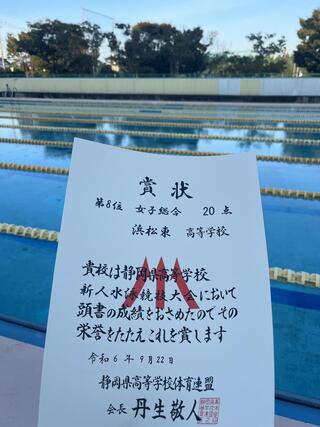 賞状
第8位 女子総合 20点
浜松東 高等学校
貴校は静岡県高等学校
新人水泳競技大会において
頭書の成績をおさめたのでその
栄誉をたたえこれを賞します
令和6年9月22日
静岡県高等学校体育連盟
会長 丹生敬人